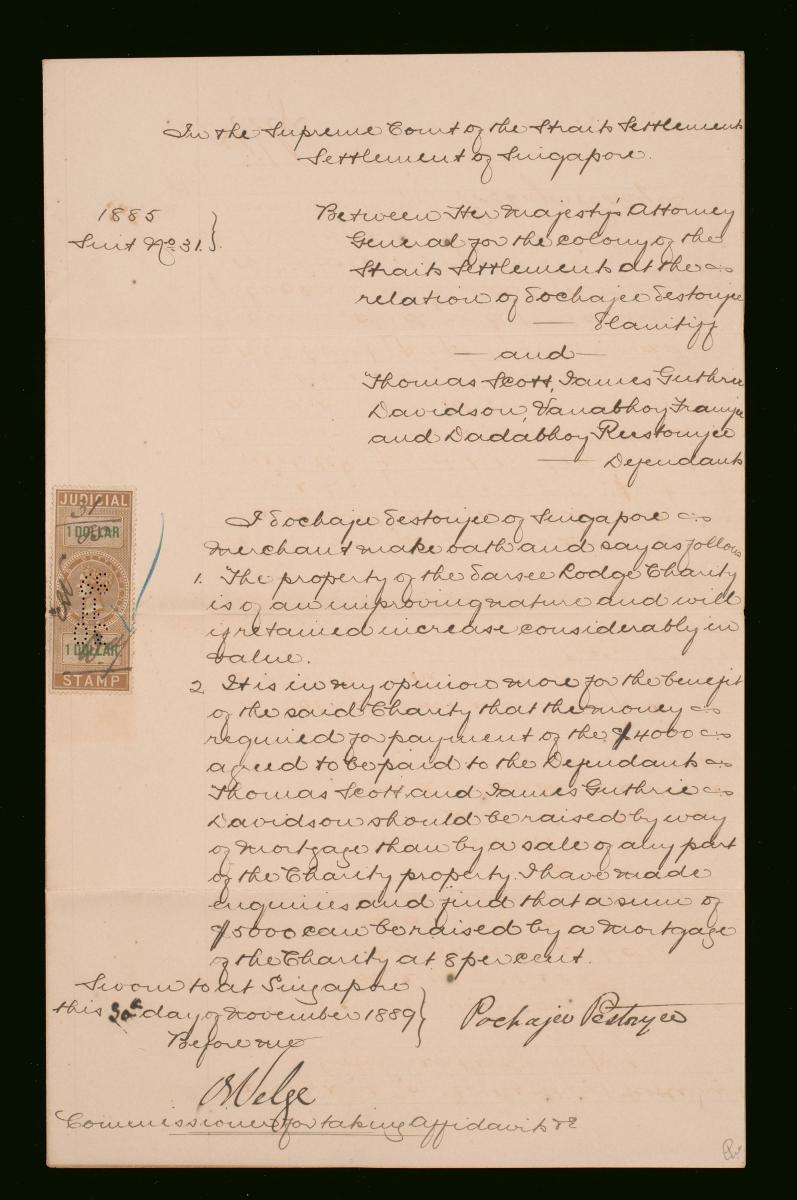 In the Supreme Court of the Straits Settlements
Settlement of Singapore.
1885
Suit No. 31.
Between Her Majesty's Attorney
General for the colony of the
Straits Settlements at the
relation of Pochajee Pestonjee
Plaintiff
and
Thomas Scott, James Guthrie
Davidson, Vanabhoy Framjee
and Dadabhoy Rustomjee
Defendants
JUDICIAL
31
1 DOLLAR
1 DOLLAR
STAMP
I Pochajee Pestonjee of Singapore
merchant make oath and say as follows
1. The property of the Parsee Lodge Charity
is of an improving nature and will
if retained increase considerably in
value.
2 It is in my opinion more for the benefit
of the said Charity that the money
required for payment of the $4000
agreed to be paid to the Defendants
Thomas Scott and James Guthrie
Davidson should be raised by way
of mortgage than by a sale of any part
of the Charity property. I have made
enquiries and find that a sum of
$5000 can be raised by a mortgage
of the Charity at 8 per cent.
Sworn to at Singapore
this day of November 1889
Before me
Pochajee Pestonjee
Commissioner for taking Affidavits &c